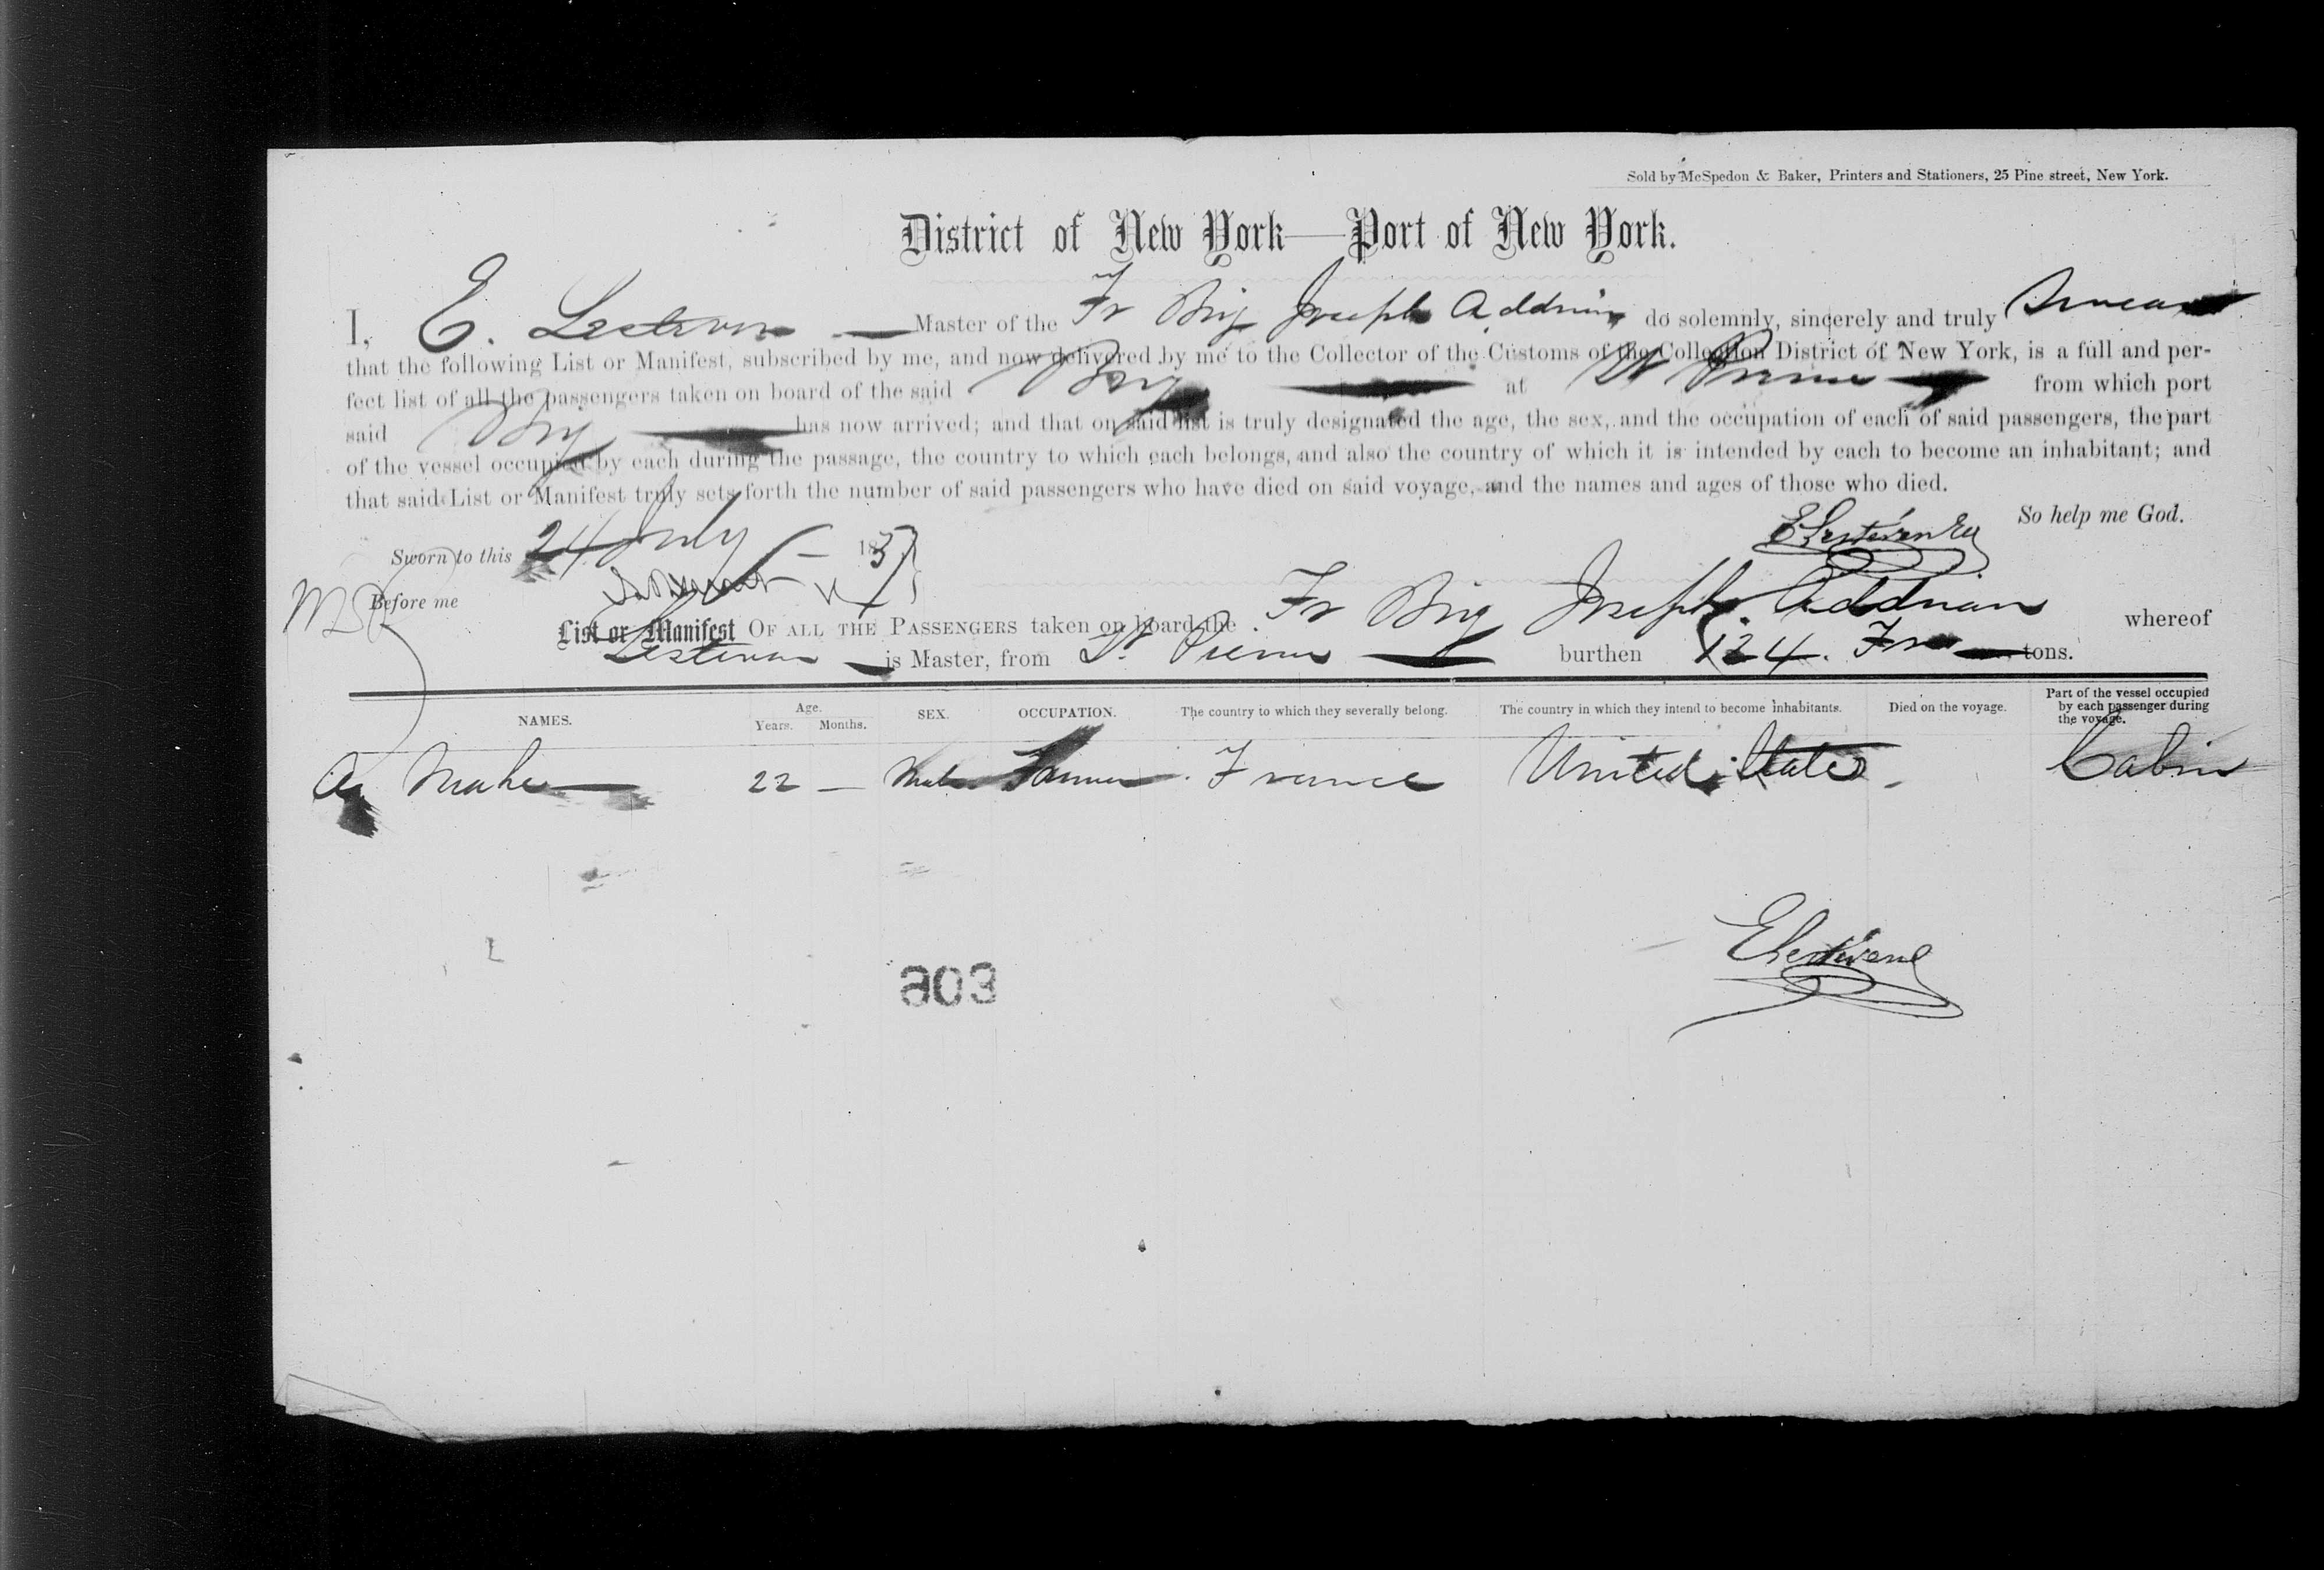 Sold by McSpedon & Baker, Printers and Stationers, 25 Pine street, New York.
District of New York—Port of New York.
I, E. Master of the Fr Brig Joseph do solemnly, sincerely and truly Swear
that the following List or Manifest, subscribed by me, and now delivered by me to the Collector of the Customs of the Collection District of New York, is a full and per-
fect list of all the passengers taken on board of the said Brig at St Pierre from which port
said Brig has now arrived; and that on said list is truly designated the age, the sex, and the occupation of each of said passengers, the part
of the vessel occupied by each during the passage, the country to which each belongs, and also the country of which it is intended by each to become an inhabitant; and
that said List or Manifest truly sets forth the number of said passengers who have died on said voyage, and the names and ages of those who died.
So help me God.
Sworn to this 24 July
Before me
List or Manifest OF ALL THE PASSENGERS taken on board the Fr Brig Joseph Addrian whereof
is Master, from St Pierre burthen 124. tons.
NAMES. Age. Years. Months. SEX. OCCUPATION. The country to which they severally belong. The country in which they intend to become inhabitants. Died on the voyage. Part of the vessel occupied by each passenger during the voyage.
22 — Male France United States Cabin
803